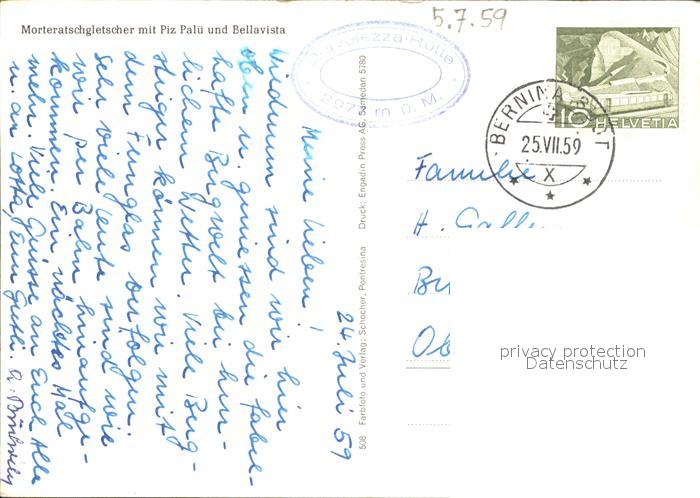 Morteratschgletscher mit Piz Palü und Bellavista
5.7.59
Diavolezza-Hütte
297 m ü. M.
HELVETIA
10
BERNINA
25.VII.59
X
24. Juli 59
Meine Lieben!
Wiederum sind wir hier
oben u. geniessen die fabel-
hafte Bergwelt bei herr-
lichem Wetter. Viele Berg-
steiger können wir mit
dem Funglas verfolgen.
Sehr viele Leute sind wie
wir per Bahn hinaufge-
kommen. Ein nächstes Mal
mehr. Viele Grüsse an Euch Alle
u. an Lotta, Eure
508 Farbfoto und Verlag: Schocher, Pontresina Druck: Engadin Press AG, Samedan 5780
Familie
H.
privacy protection
Datenschutz